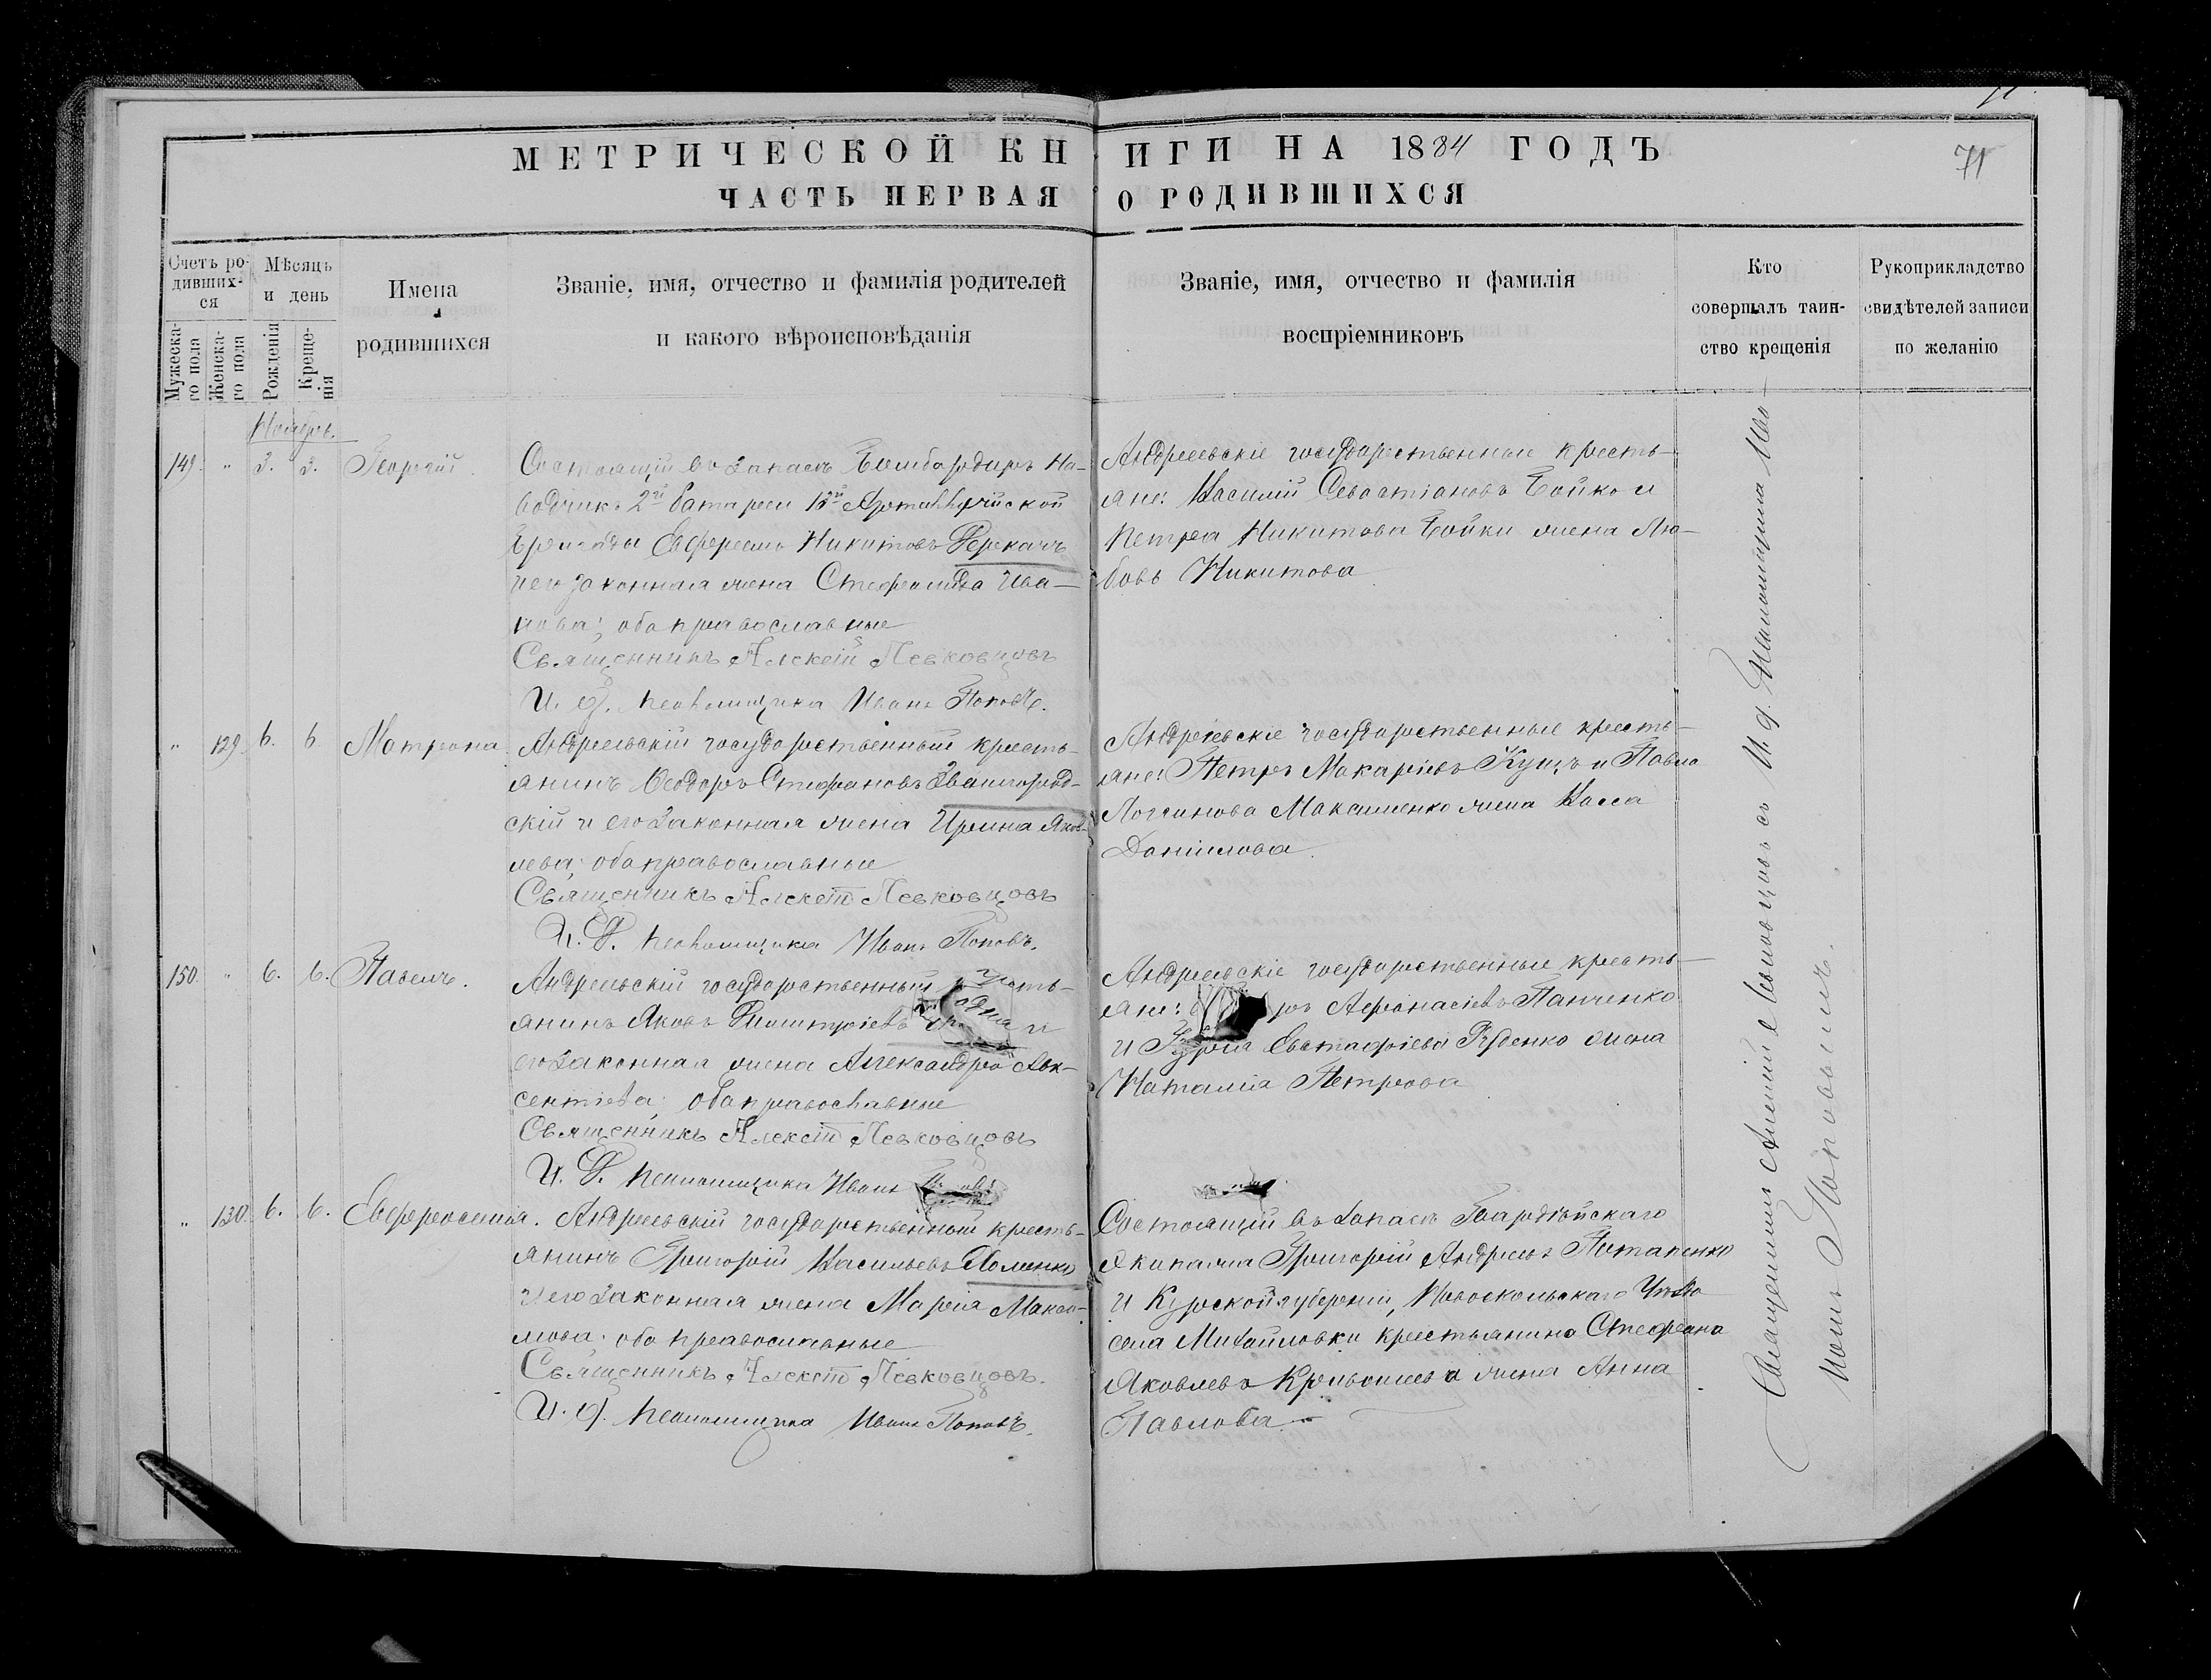 71
МЕТРИЧЕСКОЙ КНИГИ НА 1884 ГОДЪ
71
ЧАСТЬ ПЕРВАЯ О РОДИВШИХСЯ
Счетъ ро-
дивших-
ся
Мужеска-
го пола
Женска-
го пола
Мѣсяцъ
и день
Рожденія
Креще-
нія
Имена
родившихся
Званіе, имя, отчество и фамилія родителей
и какого вѣроисповѣданія
Званіе, имя, отчество и фамилія
воспріемниковъ
Кто
совершалъ таин-
ство крещенія
Рукоприкладство
свидѣтелей записи
по желанію
Ноябрь.
149. " 3. 3. Георгій.
Состоящій въ запасѣ Бомбардиръ На-
водчикъ 2й батареи Артиллерійской
Бригады Никитовъ Деркачъ
и его законная жена Стефанида Ива-
нова; оба православные
Священникъ Алексій Левковцовъ
И. д. псаломщика Иванъ Поповъ.
Андреевскіе государственные кресть-
яне: Василій Севастіановъ Бойко и
Петра Никитова Бойки жена Лю-
бовь Никитова
" 129. 6. 6 Матрона.
Андреевскій государственный кресть-
янинъ Ѳеодоръ Стефановъ Звенигород-
скій и его законная жена Ирина Яков-
лева; оба православные
Священникъ Алексій Левковцовъ
И. Д. псаломщика Иванъ Поповъ.
Андреевскіе государственные кресть-
яне: Петръ Макаріевъ Куцъ и Павла
Логгинова Максименко жена Васса
Даніилова.
150. " 6. 6. Павелъ.
Андреевскій государственный кресть-
янинъ Яковъ Димитріевъ и
его законная жена Александра Авк-
сентіева; оба православные
Священникъ Алексій Левковцовъ
И. Д. псаломщика Иванъ
Андреевскіе государственные кресть-
яне: ръ Аѳанасіевъ Панченко
и Гурія Евстафіева Руденко жена
Наталія Петрова
" 130. 6. 6. Евфросинія.
Андреевскій государственный кресть-
янинъ Григорій Васильевъ Доменко
и его законная жена Марія Макси-
мова; оба православные
Священникъ Алексій Левковцовъ.
И. д. псаломщика Иванъ Поповъ.
Состоящій въ запасѣ Гвардѣйскаго
Экипажа Григорій Андреевъ Потапенко
и Курской губерніи, Новоскольскаго Уѣзда
села Михайловки крестьянина Стефана
Яковлева жена Анна
Павлова.
Священникъ Алексій Левковцовъ съ И. д. Псаломщика Ива-
номъ Поповымъ.